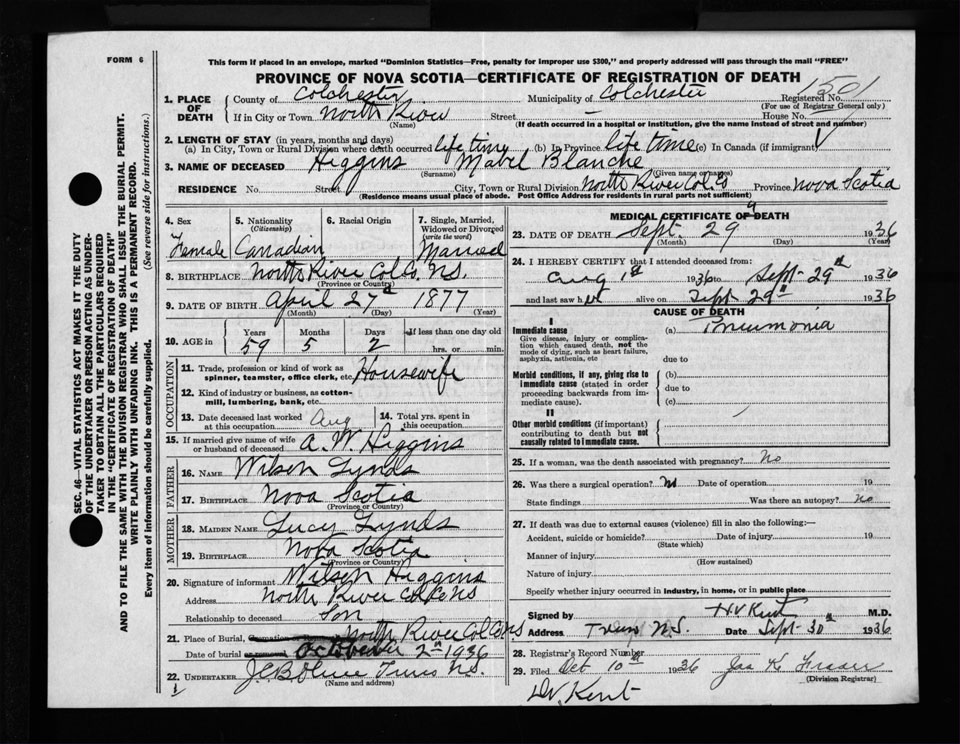 FORM 6
This form if placed in an envelope, marked "Dominion Statistics—Free, penalty for improper use $300," and properly addressed will pass through the mail "FREE"
PROVINCE OF NOVA SCOTIA—CERTIFICATE OF REGISTRATION OF DEATH
1501
1. PLACE OF DEATH County of Colchester Municipality of Colchester Registered No.
(For use of Registrar General only)
If in City or Town North River Street — House No. —
(Name) (If death occurred in a hospital or institution, give the name instead of street and number)
2. LENGTH OF STAY (in years, months and days)
(a) In City, Town or Rural Division where death occurred life time (b) In Province life time (c) In Canada (if immigrant)
3. NAME OF DECEASED Higgins Mabel Blanche
(Surname) (Given name or names)
RESIDENCE No. Street City, Town or Rural Division North River Col. Co Province Nova Scotia
(Residence means usual place of abode. Post Office Address for residents in rural parts not sufficient)
4. Sex 5. Nationality (Citizenship) 6. Racial Origin 7. Single, Married, Widowed or Divorced (write the word)
Female Canadian Married
8. BIRTHPLACE North River Col Co. N.S.
(Province or Country)
9. DATE OF BIRTH April 27th 1877
(Month) (Day) (Year)
10. AGE in Years Months Days If less than one day old
59 5 2 hrs. or min.
OCCUPATION
11. Trade, profession or kind of work as spinner, teamster, office clerk, etc. Housewife
12. Kind of industry or business, as cotton-mill, lumbering, bank, etc.
13. Date deceased last worked at this occupation Aug 14. Total yrs. spent in this occupation
15. If married give name of wife or husband of deceased A. W. Higgins
FATHER
16. NAME Wilson Lynds
17. BIRTHPLACE Nova Scotia
(Province or Country)
MOTHER
18. MAIDEN NAME Lucy Lynds
19. BIRTHPLACE Nova Scotia
(Province or Country)
20. Signature of informant Wilson Higgins
Address North River Col Co NS
Relationship to deceased Son
21. Place of Burial, Cremation or Removal North River Col Co NS
Date of burial or removal October 2nd 1936
22. UNDERTAKER Truro N.S.
(Name and address)
MEDICAL CERTIFICATE OF DEATH
23. DATE OF DEATH Sept. 29 1936
(Month) (Day) (Year)
24. I HEREBY CERTIFY that I attended deceased from:
Aug 1st 1936 to Sept-29th 1936
and last saw her alive on Sept 29th 1936
CAUSE OF DEATH
I
Immediate cause (a) Pneumonia
Give disease, injury or complication which caused death, not the mode of dying, such as heart failure, asphyxia, asthenia, etc
due to
Morbid conditions, if any, giving rise to immediate cause (stated in order proceeding backwards from immediate cause).
(b)
due to
(c)
II
Other morbid conditions (if important) contributing to death but not causally related to immediate cause.
25. If a woman, was the death associated with pregnancy? No
26. Was there a surgical operation? No Date of operation 19
State findings Was there an autopsy? No
27. If death was due to external causes (violence) fill in also the following:—
Accident, suicide or homicide? Date of injury 19
(State which)
Manner of injury
(How sustained)
Nature of injury
Specify whether injury occurred in industry, in home, or in public place
Signed by H V Kent M.D.
Address Truro N.S. Date Sept-30th 1936
28. Registrar's Record Number
29. Filed Oct 10th 1936 Jas K Fraser
(Division Registrar)
Kent
SEC. 46—VITAL STATISTICS ACT MAKES IT THE DUTY
OF THE UNDERTAKER OR PERSON ACTING AS UNDER-
TAKER TO OBTAIN ALL THE PARTICULARS REQUIRED
IN THE "CERTIFICATE OF REGISTRATION OF DEATH"
AND TO FILE THE SAME WITH THE DIVISION REGISTRAR WHO SHALL ISSUE THE BURIAL PERMIT.
WRITE PLAINLY WITH UNFADING INK. THIS IS A PERMANENT RECORD.
Every item of information should be carefully supplied. (See reverse side for instructions.)